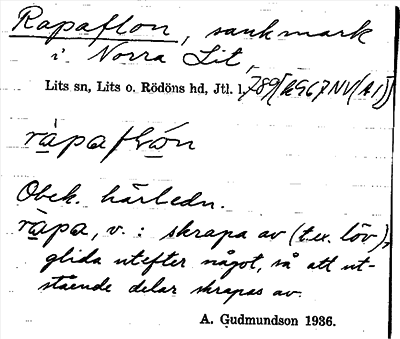 Rapaflon, sankmark
i Norra Lit,
Lits sn, Lits o. Rödöns hd, Jtl. l. 789
rapaflón
Obek. härledn.
rapa, v. : skrapa av (t.ex. löv),
glida utefter något, så att ut-
stående delar skrapas av.
A. Gudmundson 1936.